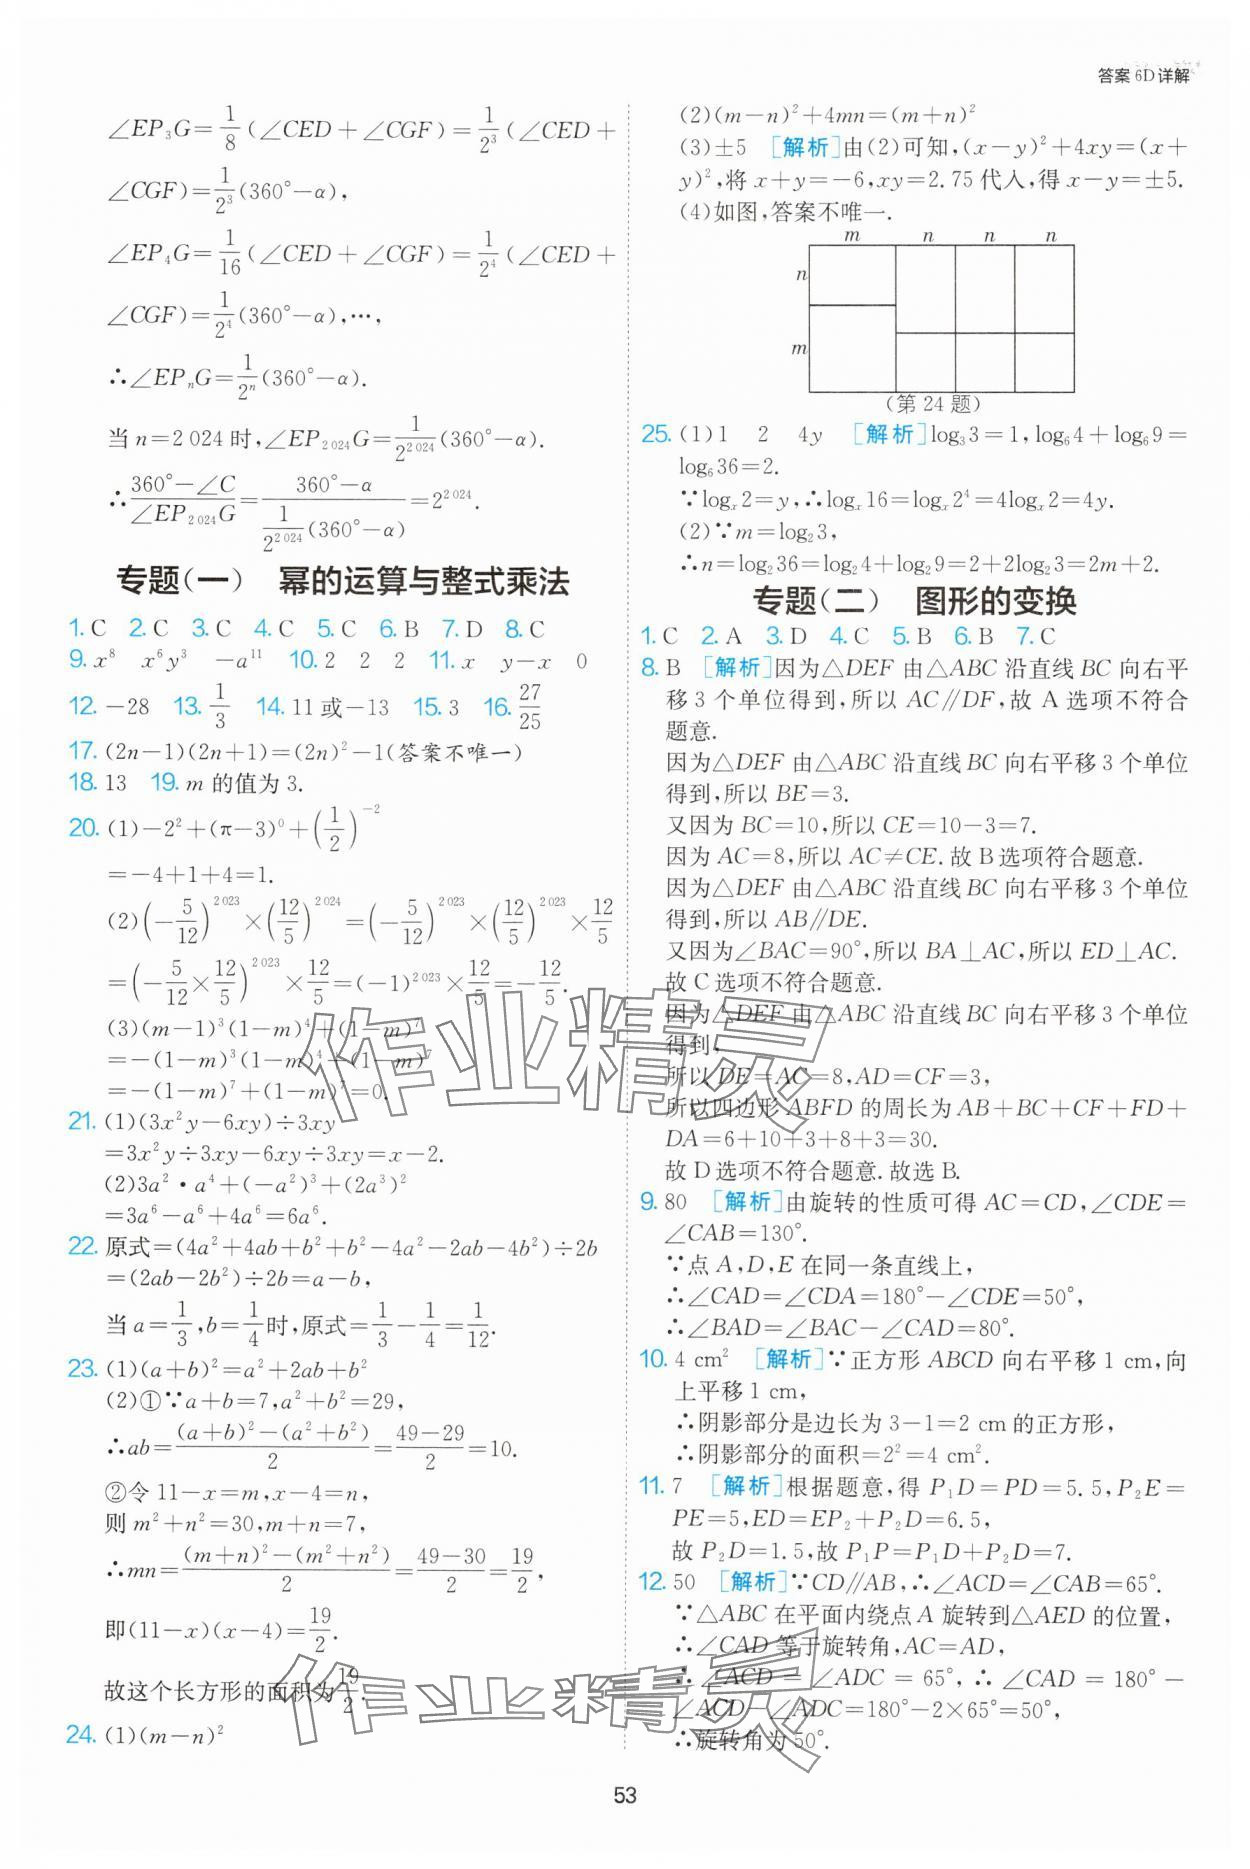 答案 6D详解
∠EP₃G=1/8(∠CED+∠CGF)=1/2³(∠CED+
∠CGF)=1/2³(360°-α),
∠EP₄G=1/16(∠CED+∠CGF)=1/2⁴(∠CED+
∠CGF)=1/2⁴(360°-α),…,
∴∠EPₙG=1/2ⁿ(360°-α).
当n=2 024时,∠EP₂ ₀₂₄G=1/2²⁰²⁴(360°-α).
∴(360°-∠C)/(∠EP₂ ₀₂₄G)=(360°-α)/(1/2²⁰²⁴(360°-α))=2²⁰²⁴.
专题(一) 幂的运算与整式乘法
1. C 2. C 3. C 4. C 5. C 6. B 7. D 8. C
9. x⁸ x⁶y³ -a¹¹ 10. 2 2 2 11. x y-x 0
12. -28 13. 1/3 14. 11或-13 15. 3 16. 27/25
17. (2n-1)(2n+1)=(2n)²-1(答案不唯一)
18. 13 19. m的值为3.
20. (1)-2²+(π-3)⁰+(1/2)⁻²
=-4+1+4=1.
(2)(-5/12)²⁰²³×(12/5)²⁰²⁴=(-5/12)²⁰²³×(12/5)²⁰²³×12/5
=(-5/12×12/5)²⁰²³×12/5=(-1)²⁰²³×12/5=-12/5.
(3)(m-1)³(1-m)⁴+(1-m)⁷
=-(1-m)³(1-m)⁴+(1-m)⁷
=-(1-m)⁷+(1-m)⁷=0.
21. (1)(3x²y-6xy)÷3xy
=3x²y÷3xy-6xy÷3xy=x-2.
(2)3a²·a⁴+(-a²)³+(2a³)²
=3a⁶-a⁶+4a⁶=6a⁶.
22. 原式=(4a²+4ab+b²+b²-4a²-2ab-4b²)÷2b
=(2ab-2b²)÷2b=a-b,
当a=1/3,b=1/4时,原式=1/3-1/4=1/12.
23. (1)(a+b)²=a²+2ab+b²
(2)①∵a+b=7,a²+b²=29,
∴ab=((a+b)²-(a²+b²))/2=(49-29)/2=10.
②令11-x=m,x-4=n,
则m²+n²=30,m+n=7,
∴mn=((m+n)²-(m²+n²))/2=(49-30)/2=19/2,
即(11-x)(x-4)=19/2.
故这个长方形的面积为19/2.
24. (1)(m-n)²
(2)(m-n)²+4mn=(m+n)²
(3)±5 [解析]由(2)可知,(x-y)²+4xy=(x+
y)²,将x+y=-6,xy=2.75代入,得x-y=±5.
(4)如图,答案不唯一.
m n n n
n
m
(第24题)
25. (1)1 2 4y [解析]log₃3=1,log₆4+log₆9=
log₆36=2.
∵logₓ2=y,∴logₓ16=logₓ2⁴=4logₓ2=4y.
(2)∵m=log₂3,
∴n=log₂36=log₂4+log₂9=2+2log₂3=2m+2.
专题(二) 图形的变换
1. C 2. A 3. D 4. C 5. B 6. B 7. C
8. B [解析]因为△DEF由△ABC沿直线BC向右平
移3个单位得到,所以AC∥DF,故A选项不符合
题意.
因为△DEF由△ABC沿直线BC向右平移3个单位
得到,所以BE=3.
又因为BC=10,所以CE=10-3=7.
因为AC=8,所以AC≠CE.故B选项符合题意.
因为△DEF由△ABC沿直线BC向右平移3个单位
得到,所以AB∥DE.
又因为∠BAC=90°,所以BA⊥AC,所以ED⊥AC.
故C选项不符合题意.
因为△DEF由△ABC沿直线BC向右平移3个单位
得到,
所以DE=AC=8,AD=CF=3,
所以四边形ABFD的周长为AB+BC+CF+FD+
DA=6+10+3+8+3=30.
故D选项不符合题意.故选B.
9. 80 [解析]由旋转的性质可得AC=CD,∠CDE=
∠CAB=130°.
∵点A,D,E在同一条直线上,
∴∠CAD=∠CDA=180°-∠CDE=50°,
∴∠BAD=∠BAC-∠CAD=80°.
10. 4 cm² [解析]∵正方形ABCD向右平移1 cm,向
上平移1 cm,
∴阴影部分是边长为3-1=2 cm的正方形,
∴阴影部分的面积=2²=4 cm².
11. 7 [解析]根据题意,得P₁D=PD=5.5,P₂E=
PE=5,ED=EP₂+P₂D=6.5,
故P₂D=1.5,故P₁P=P₁D+P₂D=7.
12. 50 [解析]∵CD∥AB,∴∠ACD=∠CAB=65°.
∵△ABC在平面内绕点A旋转到△AED的位置,
∴∠CAD等于旋转角,AC=AD,
∴∠ACD=∠ADC=65°,∴∠CAD=180°-
∠ACD-∠ADC=180°-2×65°=50°,
∴旋转角为50°.
作业精灵
作业精灵
53